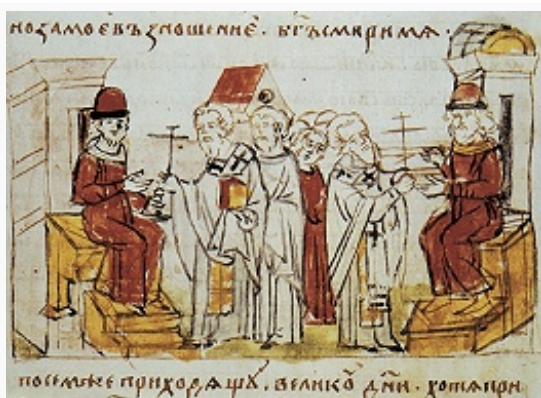 но за мое възношение. бг҃ъ смири мѧ.
посемъже приходѧщꙋ. великоⷨ дн҃и. хотѧ при